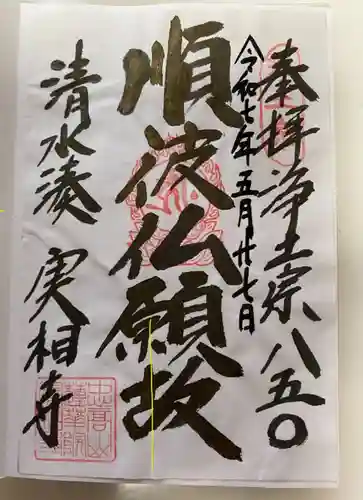 奉拝 浄土宗八五〇
令和七年五月廿七日
順彼仏願故
清水湊 実相寺